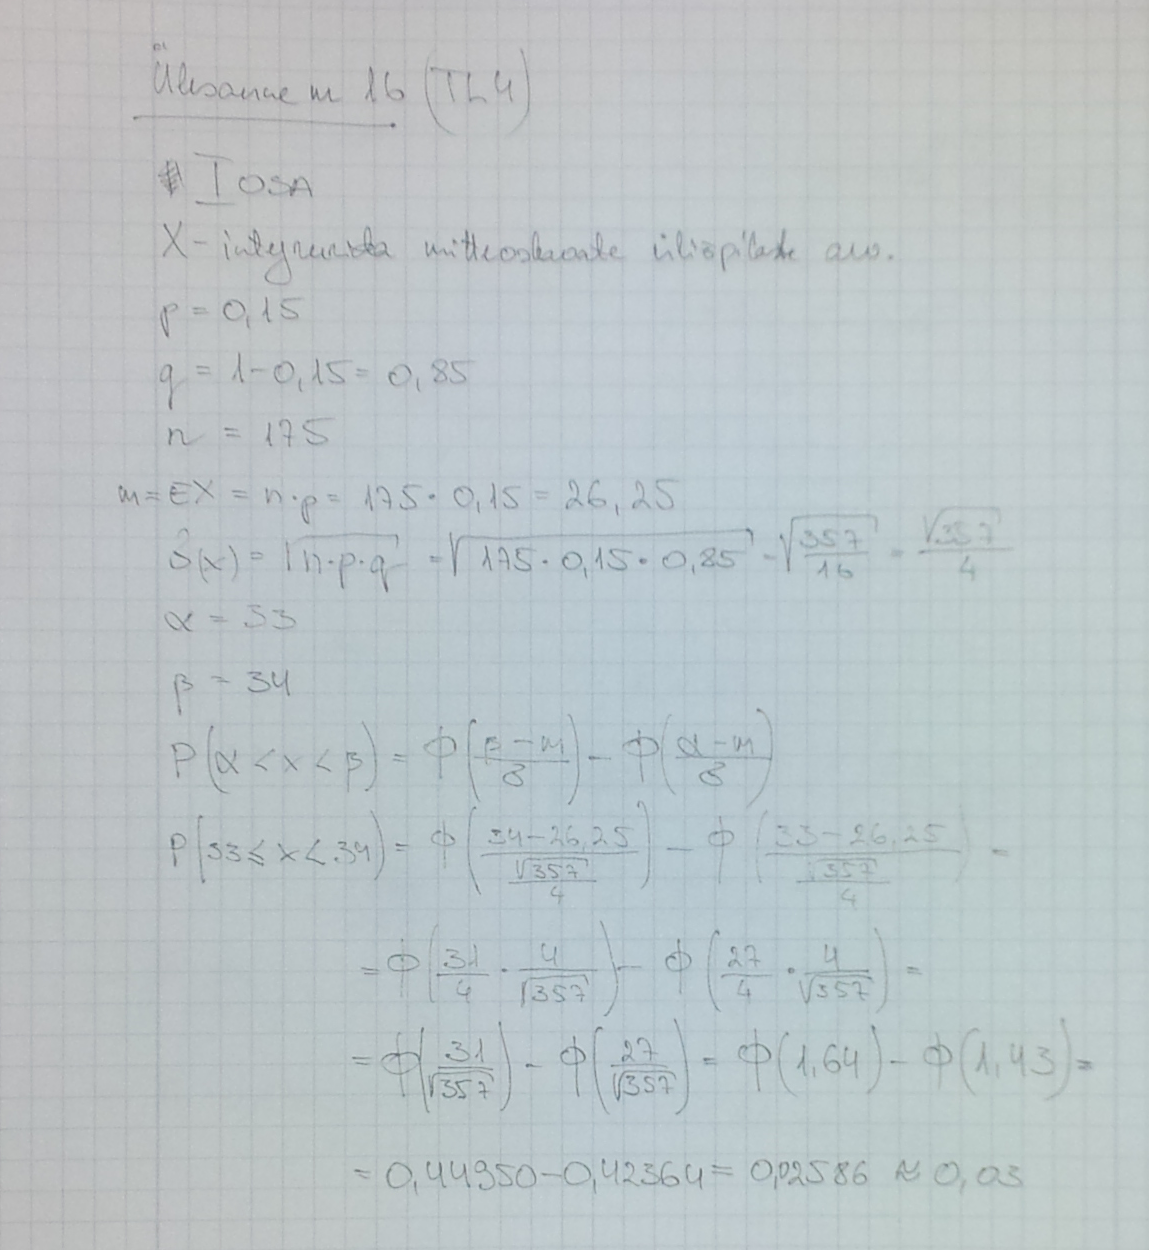 Ülesanne nr 16 (TL4)
I OSA
X - integreerida mitteoskavate üliõpilaste arv.
p = 0,15
q = 1-0,15 = 0,85
n = 175
m = EX = n·p = 175 · 0,15 = 26,25
σ(x) = √(n·p·q) = √(175 · 0,15 · 0,85) = √(357/16) = √357/4
α = 33
β = 34
P(α < x < β) = Φ((β-m)/σ) - Φ((α-m)/σ)
P(33 ≤ x < 34) = Φ((34-26,25)/(√357/4)) - Φ((33-26,25)/(√357/4)) =
= Φ(31/4 · 4/√357) - Φ(27/4 · 4/√357) =
= Φ(31/√357) - Φ(27/√357) = Φ(1,64) - Φ(1,43) =
= 0,44950 - 0,42364 = 0,02586 ≈ 0,03